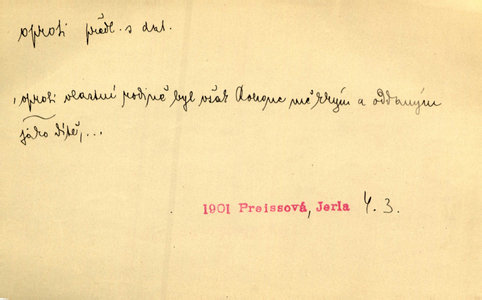 oproti předl. s dat.
, oproti vlastní rodině byl však Konopc měkkým a oddaným
jako dítě,...
1901 Preissová, Jerla 4. 3.